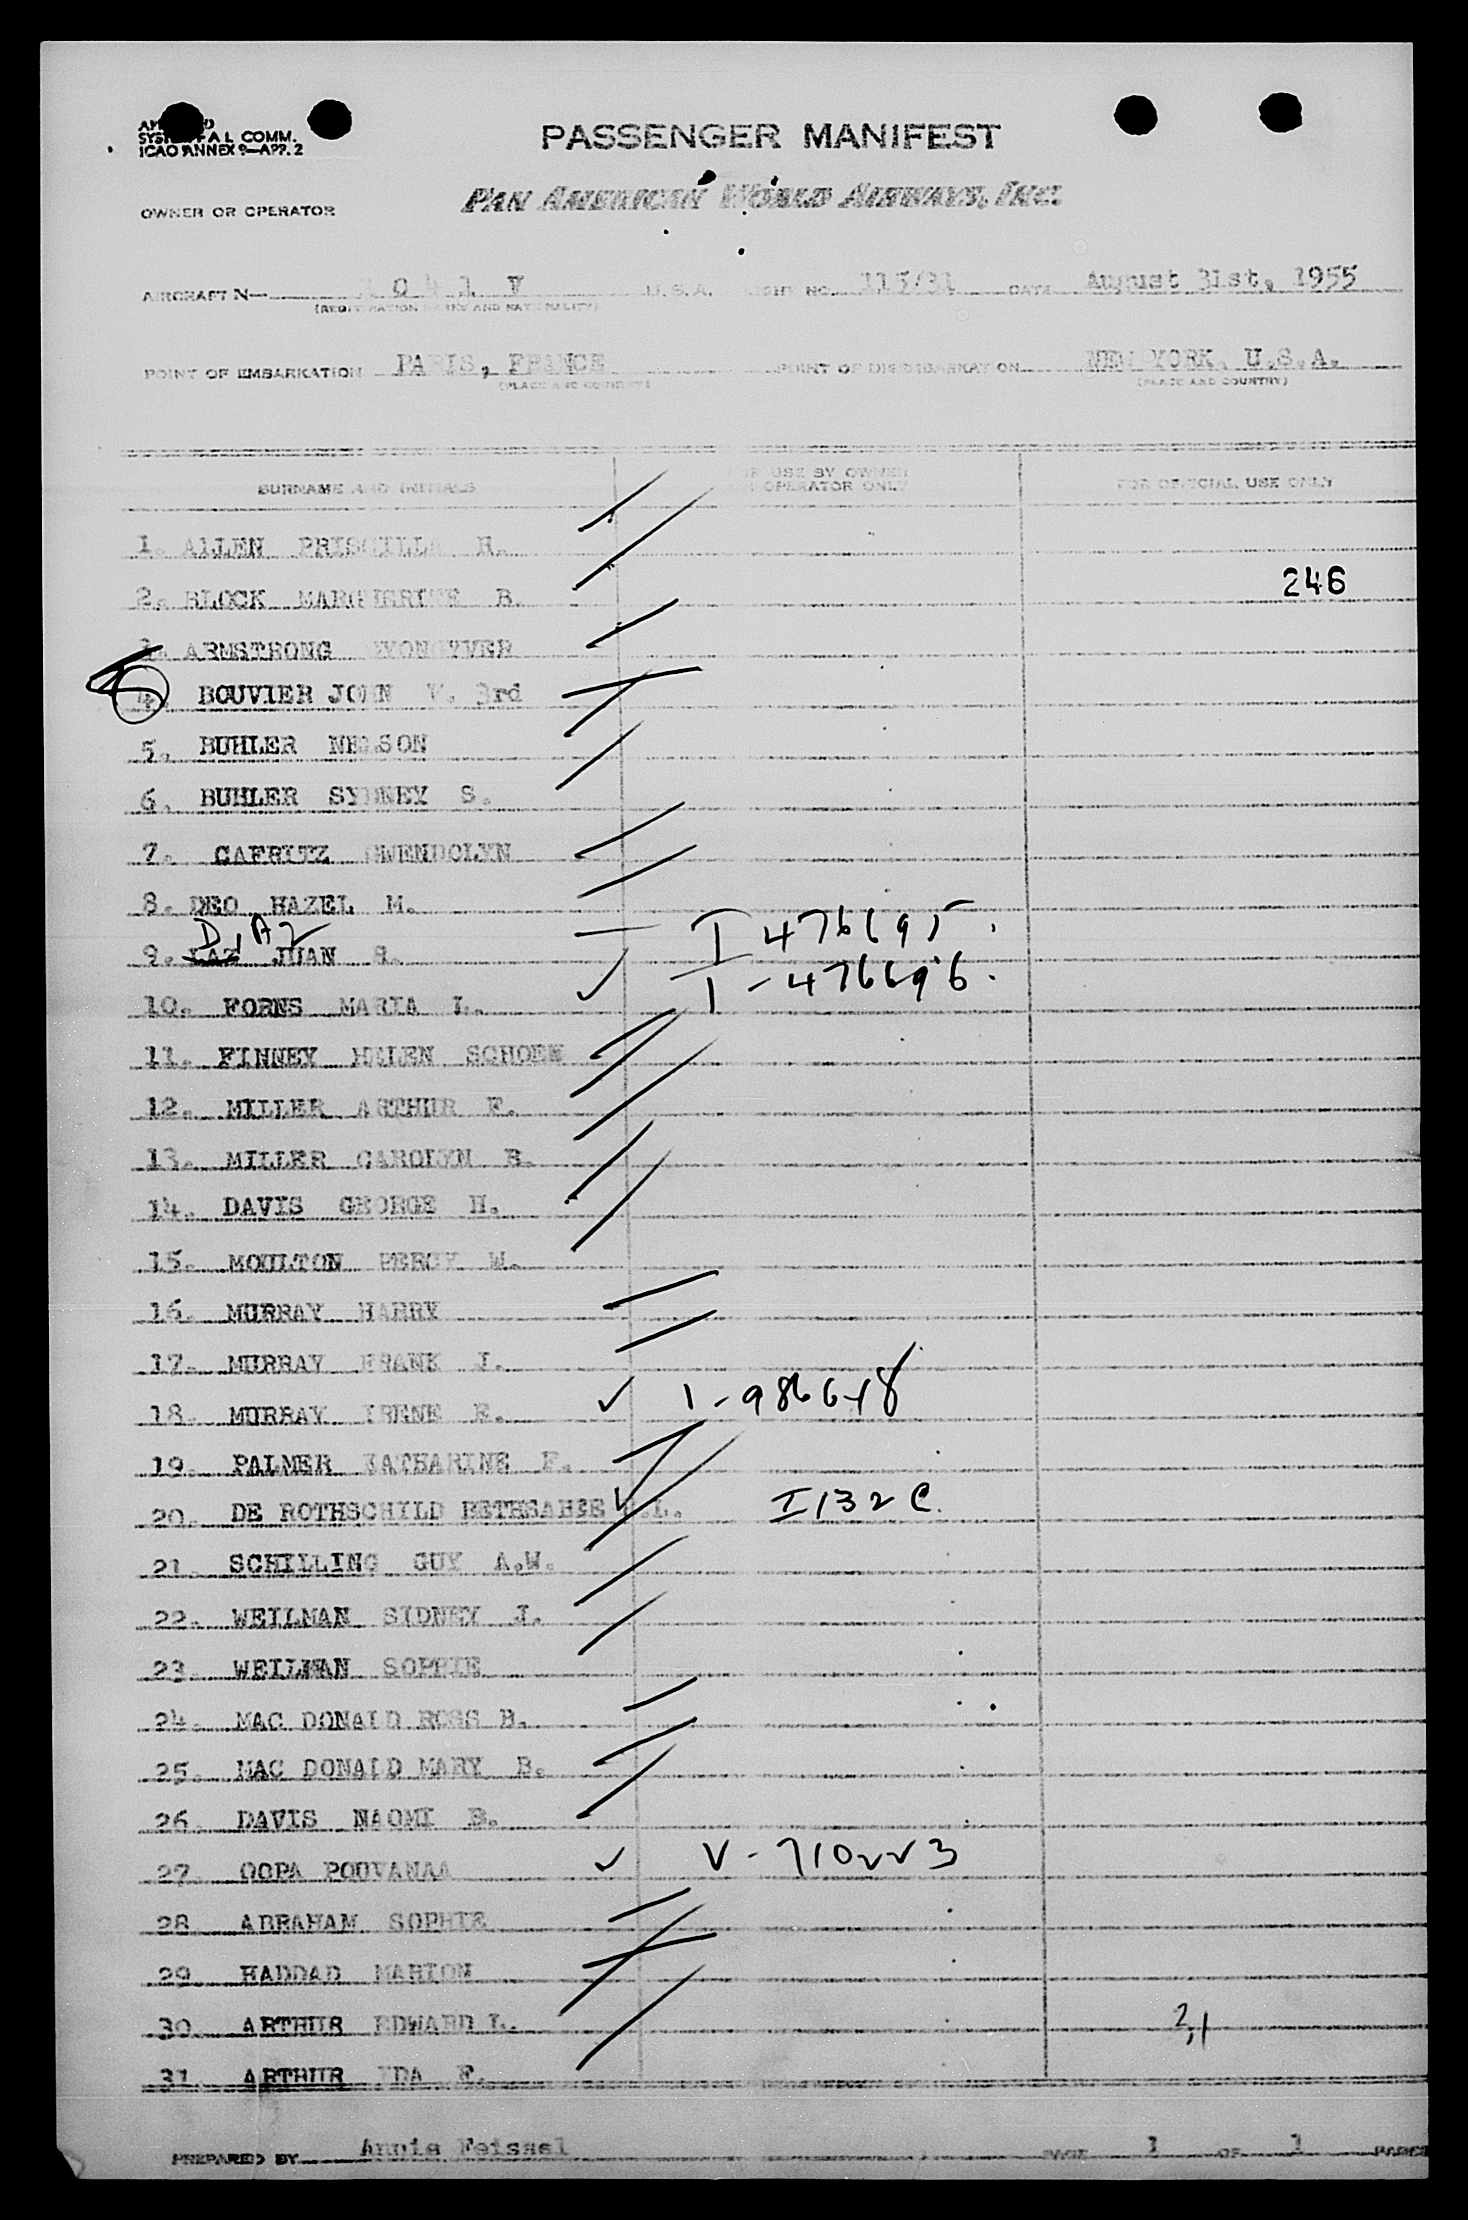 SYSTEM AL COMM.
ICAO ANNEX 9—APP. 2
PASSENGER MANIFEST
OWNER OR OPERATOR PAN AMERICAN WORLD AIRWAYS, INC.
AIRCRAFT N— 1 0 4 1 V U.S.A. FLIGHT NO. 115/31 DATE August 31st, 1955
(REGISTRATION MARKS AND NATIONALITY)
POINT OF EMBARKATION PARIS, FRANCE POINT OF DISEMBARKATION NEW YORK, U.S.A.
(PLACE AND COUNTRY) (PLACE AND COUNTRY)
SURNAME AND INITIALS FOR USE BY OWNER OR OPERATOR ONLY FOR OFFICIAL USE ONLY
1. ALLEN PRISCILLA H.
2. BLOCK MARGUERITE B. 246
3. ARMSTRONG
4. BOUVIER JOHN V. 3rd
5. BUHLER NELSON
6. BUHLER SYDNEY S.
7. CAFRITZ GWENDOLYN
8. DEO HAZEL M.
DIAZ I 476695.
9. JUAN I-476696.
10. FORNS MARIA L.
11. FINNEY HELEN SCHOEN
12. MILLER ARTHUR F.
13. MILLER CAROLYN B.
14. DAVIS GEORGE H.
15. MOULTON PERCY W.
16. MURRAY HARRY
17. MURRAY FRANK J.
18. MURRAY IRENE E. 1-986648
19. PALMER KATHARINE F.
20. DE ROTHSCHILD BETHSABEE L. I 132 C.
21. SCHILLING GUY A.W.
22. WEILMAN SIDNEY J.
23. WEILMAN SOPHIE
24. MAC DONALD ROSS B.
25. MAC DONALD MARY B.
26. DAVIS NAOMI B.
27. OOPA POUVANAA V-710223
28. ABRAHAM SOPHIE
29. HADDAD MARION
30. ARTHUR EDWARD L. 2,1
31. ARTHUR IDA F.
PREPARED BY Annie Feissel PAGE 1 OF 1